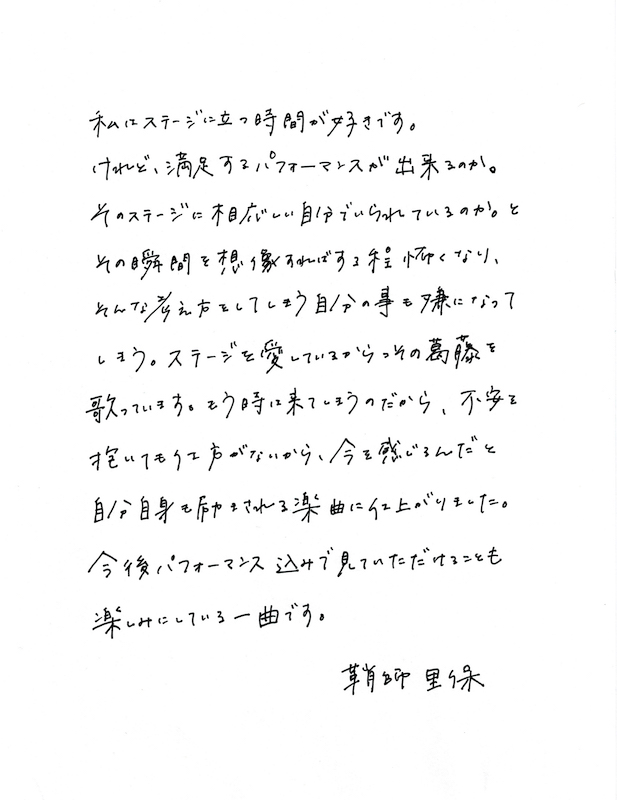 私はステージに立つ時間が好きです。
けれど、満足するパフォーマンスが出来るのか。
そのステージに相応しい自分でいられているのか。と
その瞬間を想像すればする程怖くなり、
そんな考え方をしてしまう自分の事も嫌になって
しまう。ステージを愛しているからっその葛藤を
歌っています。もう時は来てしまうのだから、不安を
抱いても仕方がないから、今を感じるんだと
自分自身も励まされる楽曲に仕上がりました。
今後パフォーマンス込みで見ていただけることも
楽しみにしている一曲です。
鞘師里保